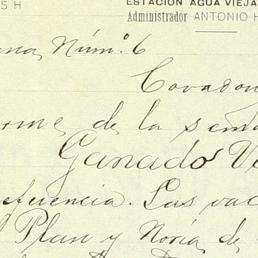 S H
ESTACIÓN AGUA VIEJA
Administrador ANTONIO H
ana Núm. 6
Covadon
orme de la sema
Ganado Va
referencia. Las vac
l Plan y Noria de